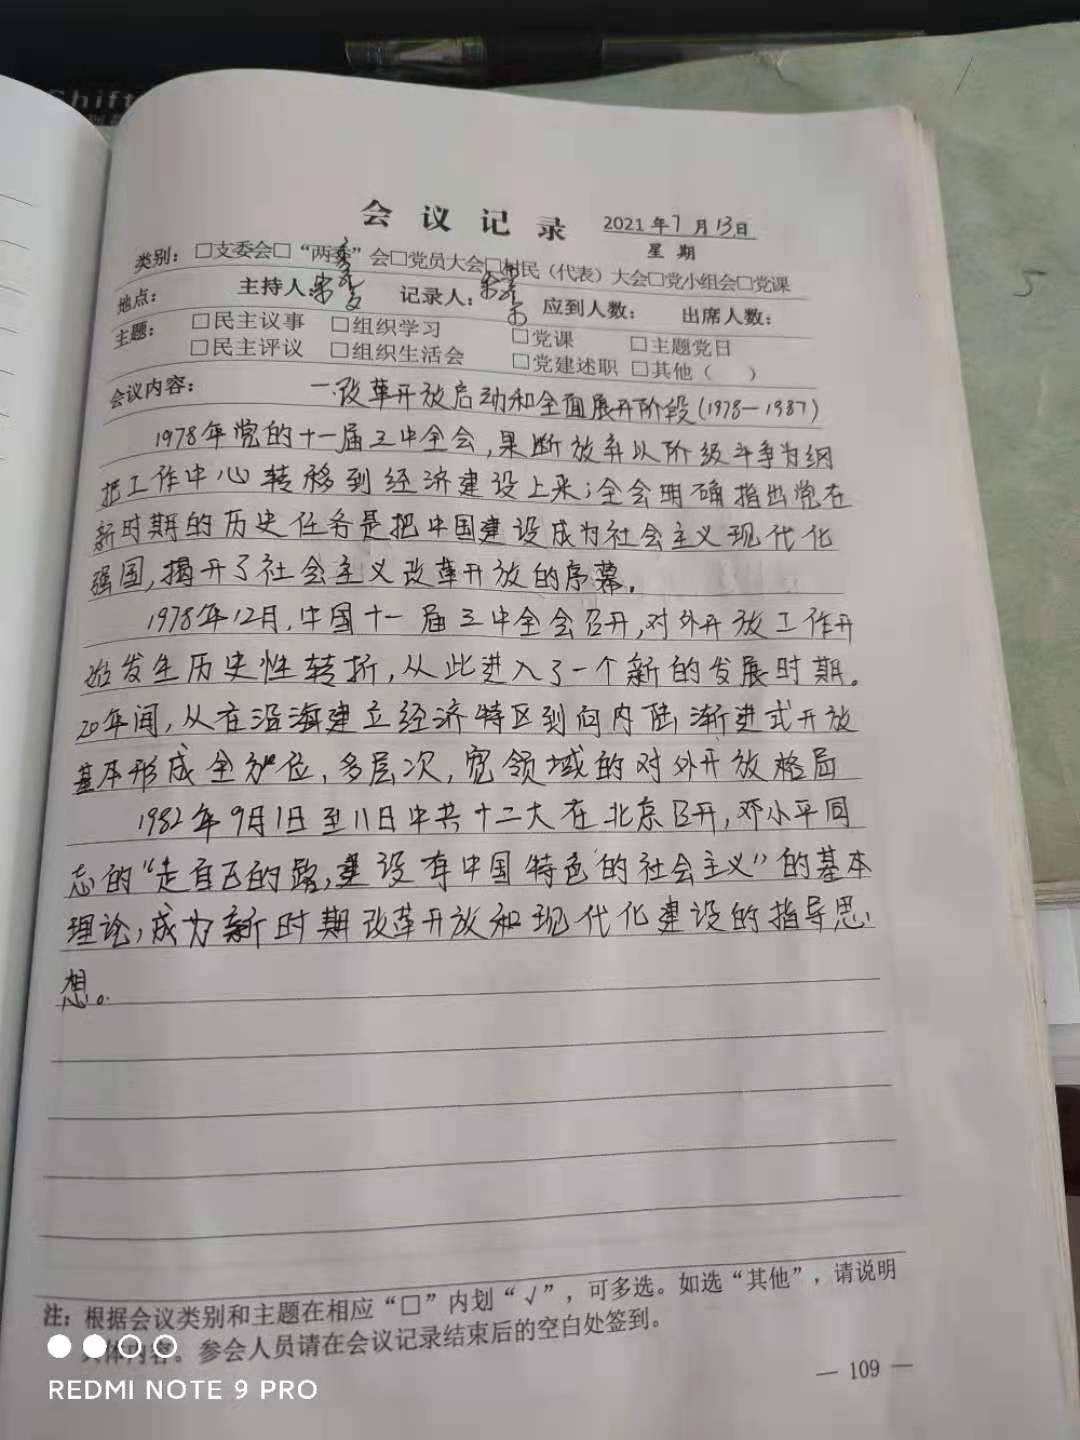 Shift
会议记录 2021年7月13日
星期
类别：□支委会□“两委”会□党员大会□村民（代表）大会□党小组会□党课
地点： 主持人：宋 记录人：宋 应到人数： 出席人数：
主题： □民主议事 □组织学习 □党课 □主题党日
□民主评议 □组织生活会 □党建述职 □其他（ ）
会议内容： 一.改革开放启动和全面展开阶段(1978—1987)
1978年党的十一届三中全会，果断放弃以阶级斗争为纲
把工作中心转移到经济建设上来；全会明确指出党在
新时期的历史任务是把中国建设成为社会主义现代化
强国，揭开了社会主义改革开放的序幕。
1978年12月，中国十一届三中全会召开，对外开放工作开
始发生历史性转折，从此进入了一个新的发展时期。
20年间，从在沿海建立经济特区到向内陆渐进式开放
基本形成全方位，多层次，宽领域的对外开放格局
1982年9月1日至11日中共十二大在北京召开，邓小平同
志的“走自己的路，建设有中国特色的社会主义”的基本
理论，成为新时期改革开放和现代化建设的指导思
想。
注：根据会议类别和主题在相应“□”内划“√”，可多选。如选“其他”，请说明
具体内容。参会人员请在会议记录结束后的空白处签到。
— 109 —
REDMI NOTE 9 PRO